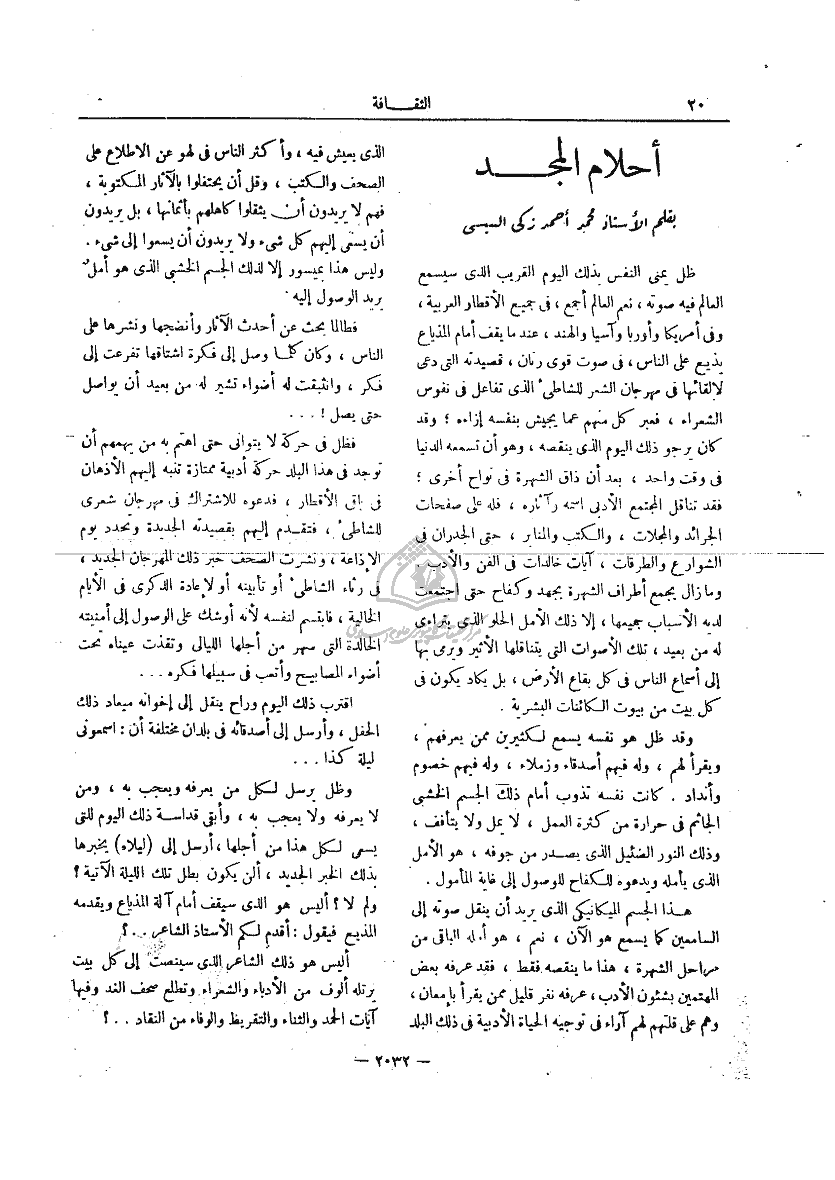 ٢٠
الثقـــافة
أحلام المجـــد
بقلم الأستاذ محمد أحمد زكى السيسى
ظل يمنى النفس بذلك اليوم القريب الذى سيسمع
العالم فيه صوته ، نعم العالم أجمع ، فى جميع الأقطار العربية ،
وفى أمريكا وأوربا وآسيا والهند ، عند ما يقف أمام المذياع
يذيع على الناس ، فى صوت قوى رنان ، قصيدته التى دعى
لالقائها فى مهرجان الشعر للشاطىء الذى تفاعل فى نفوس
الشعراء ، فعبر كل منهم عما يجيش بنفسه إزاءه ؛ وقد
كان يرجو ذلك اليوم الذى ينقصه ، وهو أن تسمعه الدنيا
فى وقت واحد ، بعد أن ذاق الشهرة فى نواح أخرى ؛
فقد تناقل المجتمع الأدبى اسمه وآثاره ، فله على صفحات
الجرائد والمجلات ، والكتب والمنابر ، حتى الجدران فى
الشوارع والطرقات ، آيات خالدات فى الفن والأدب .
وما زال يجمع أطراف الشهرة بجهد وكفاح حتى اجتمعت
لديه الأسباب جميعها ، إلا ذلك الأمل الحلو الذى يتراءى
له من بعيد ، تلك الأصوات التى يتناقلها الأثير ويرمى بها
إلى أسماع الناس فى كل بقاع الأرض ، بل يكاد يكون فى
كل بيت من بيوت الكائنات البشرية .
وقد ظل هو نفسه يسمع لكثيرين ممن يعرفهم ،
ويقرأ لهم ، وله فيهم أصدقاء وزملاء ، وله فيهم خصوم
وأنداد . كانت نفسه تذوب أمام ذلك الجسم الخشبى
الجاثم فى حرارة من كثرة العمل ، لا يمل ولا يتأفف ،
وذلك النور الضئيل الذى يصدر من جوفه ، هو الأمل
الذى يأمله ويدعوه للكفاح للوصول إلى غاية المأمول .
هذا الجسم الميكانيكى الذى يريد أن ينقل صوته إلى
السامعين كما يسمع هو الآن ، نعم ، هو أمله الباقى من
مراحل الشهرة ، هذا ما ينقصه فقط ، فقد عرفه بعض
المهتمين بشئون الأدب ، عرفه نفر قليل ممن يقرأ بإمعان ،
وهم على قلتهم لهم آراء فى توجيه الحياة الأدبية فى ذلك البلد
الذى يعيش فيه ، وأكثر الناس فى لهو عن الاطلاع على
الصحف والكتب ، وقل أن يحتفلوا بالآثار المكتوبة ،
فهم لا يريدون أن يثقلوا كاهلهم بأثمانها ، بل يريدون
أن يسعى إليهم كل شىء ولا يريدون أن يسعوا إلى شىء .
وليس هذا بميسور إلا لذلك الجسم الخشبى الذى هو أمل
يريد الوصول إليه
فطالما بحث عن أحدث الآثار وأنضجها ونشرها على
الناس ، وكان كلما وصل إلى فكرة اشتاقها تفرعت إلى
فكر ، وانبثقت له أضواء تشير له من بعيد أن يواصل
حتى يصل ! . . .
فظل فى حركة لا يتوانى حتى اهتم به من يهمهم أن
توجد فى هذا البلد حركة أدبية ممتازة تنبه إليهم الأذهان
فى باقى الأقطار ، فدعوه للاشتراك فى مهرجان شعرى
للشاطىء ، فتقدم إليهم بقصيدته الجديدة وتحدد يوم
الإذاعة ، ونشرت الصحف خبر ذلك المهرجان الجديد ،
فى رثاء الشاطىء أو تأبينه أو لإعادة الذكرى فى الأيام
الخالية ، فابتسم لنفسه لأنه أوشك على الوصول إلى أمنيته
الخالدة التى سهر من أجلها الليالى وتقذت عيناه تحت
أضواء المصابيح وأتعب فى سبيلها فكره . . .
اقترب ذلك اليوم وراح ينقل إلى إخوانه ميعاد ذلك
الحفل ، وأرسل إلى أصدقائه فى بلدان مختلفة أن : اسمعونى
ليلة كذا . . .
وظل يرسل لكل من يعرفه ويعجب به ، ومن
لا يعرفه ولا يعجب به ، وأبقى قداسة ذلك اليوم للتى
يسعى لكل هذا من أجلها ، أرسل إلى (ليلاه) يخبرها
بذلك الخبر الجديد ، ألن يكون بطل تلك الليلة الآتية ؟
ولم لا ؟ أليس هو الذى سيقف أمام آلة المذياع ويقدمه
المذيع فيقول : أقدم لكم الأستاذ الشاعر . . ؟
أليس هو ذلك الشاعر الذى سينصت إلى كل بيت
يرتله ألوف من الأدباء والشعراء وتطلع صحف الغد وفيها
آيات الحمد والثناء والتقريظ والوفاء من النقاد . . ؟
— ٢٠٣٢ —